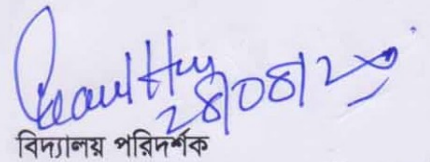 28/08/20
বিদ্যালয় পরিদর্শক